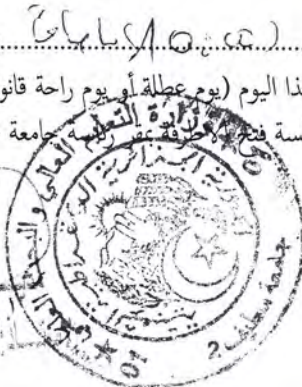 ذا اليوم (يوم عطلة أو يوم راحة قانو
سة فتح الأظرفة بمقر رئاسة جامعة
وزارة التعليم العالي والبحث العلمي
الجمهورية الجزائرية الديمقراطية الشعبية
جامعة سطيف 2
01